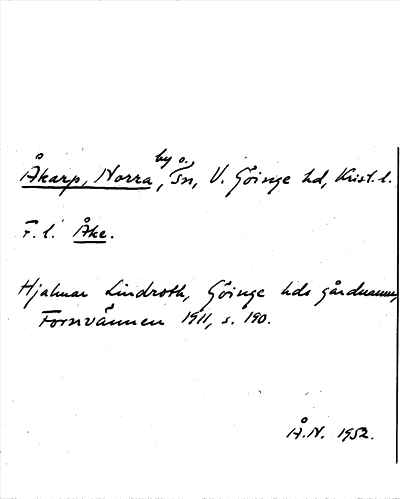 Åkarp, Norra, by o. sn, V. Göinge hd, Krist. l.
F. l. Åke.
Hjalmar Lindroth, Göinge hds gårdnamn,
Fornvännen 1911, s. 190.
Å.N. 1952.